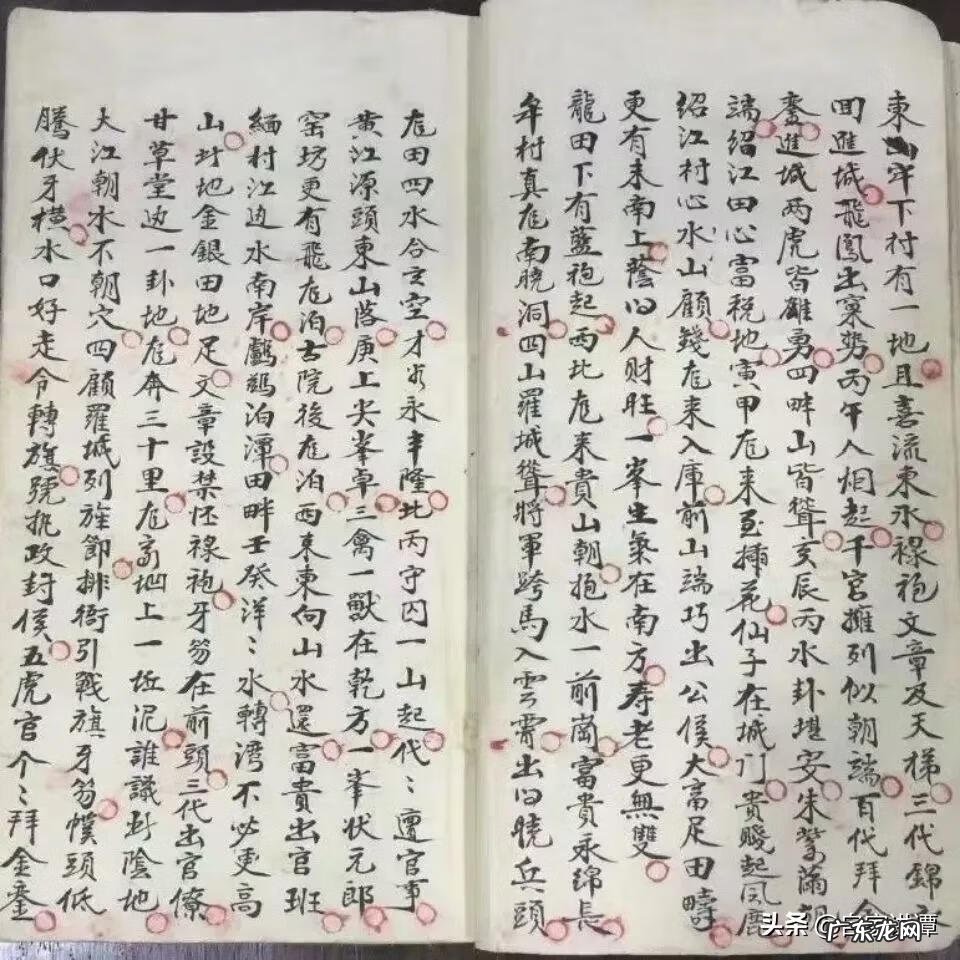 東山牛下村有一地且喜流東水祿袍文章及天梯三代錦衣
回進城飛鳳出窠势丙午人烟起千官擁列似朝端百代拜金
鑾進城两虎皆雄勇四畔山皆聳亥辰丙水卦堪安朱紫滿朝
端紹江田心富税地寅甲龙来至插花仙子在城门貴賤起風塵
紹江村心水山顧錢龙来入庫前山端巧出公侯大富足田疇
更有未南上蔭同人财旺一峯生氣在南方寿老更無雙
龍田下有藍袍起丙比龙来貴山朝抱水一前岗富貴永綿長
牟村真龙南曉洞四山羅城聳將軍跨馬入雲霄出同曉兵頭
龙田四水合玄空才谷永丰隆北丙守囚一山起代〻遭官事
黄江源頭東山落庚上尖峯卓三禽一獸在乾方一峯状元郎
窑坊更有飛龙泊古院後龙泊西来東向山水還富貴出官班
緬村江边水南岸鸕鶿泊潭田畔壬癸洋〻水轉湾不必更高
山封地金銀田地足文章設禁怀祿袍牙笏在前頭三代出官僚
甘草堂边一卦地龙奔三十里龙高地上一坵泥誰識封陰地
大江朝水不朝穴四顧羅城列旌節排衙引戰旗牙笏幞頭低
腾伏牙横水口好走令轉旗號执政封侯五虎官个〻拜金鑾
头条
广东龙网